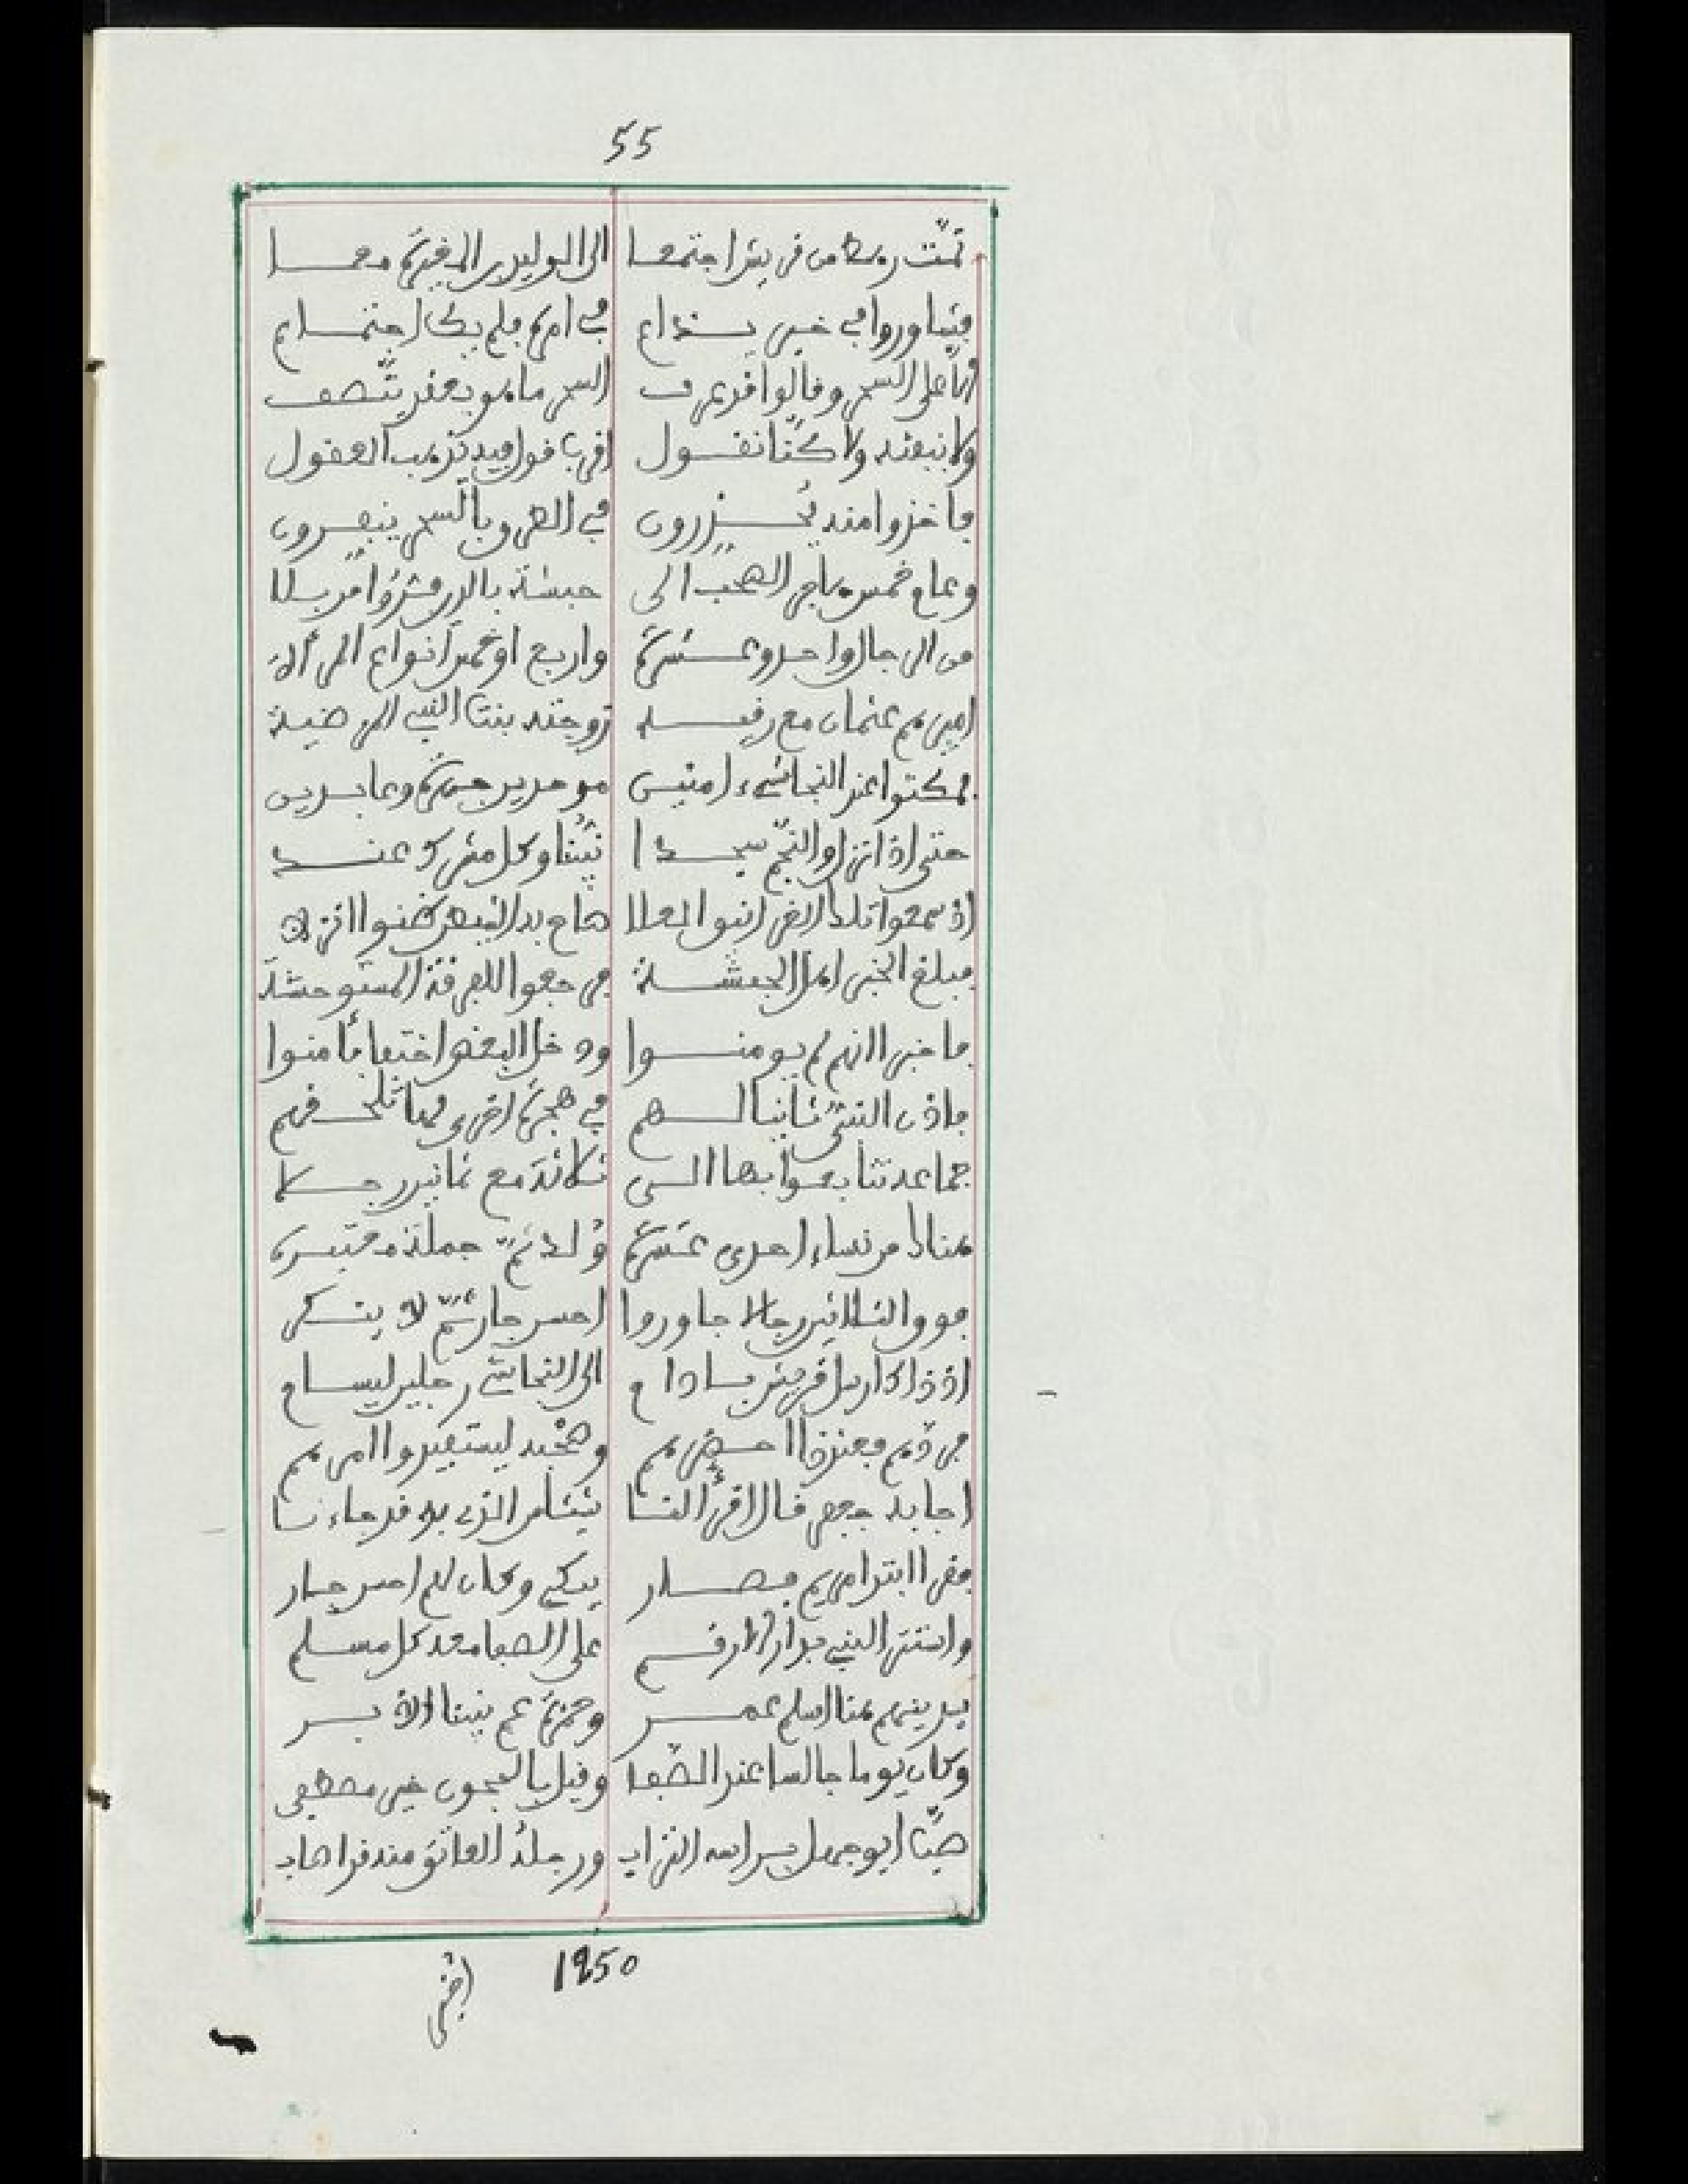 55
ثمت رهط من قريش اجتمعا الى الوليد بن المغيرة معا
فتشاوروا في خير بنداع في امره فلم يكن اجتماع
الا على السحر وقالوا قد عرف السحر ما هو بعقد يتصف
ولا نبعثه ولا كنا نقول اقرب قول فيه تذهب العقول
فاخذوا منه يحذرون في الطرو بالسحر ينبعدون
وعام خمس هاجر الصحب الى حبشة بالدين فروا مرسلا
من الرجال واحد وعشرة واربع او خمس انواع المرأة
اميرهم عثمان مع رقية زوجته بنت النبي المرضية
فمكثوا عند النجاشي ءامنين موحدين جهرة وعابدين
حتى اذا انزل والنجم سجدا نبينا وكل مشرك عند
اذ سمعوا تلك الغرانيق العلا صاح به البعض ظنوا انزلا
فبلغ الخبر اهل الحبشة فرجعوا للفرقة المستوحشة
فاخبروا انهم لم يومنوا ودخل البعض اختفا فأمنوا
فاذن النبي ثانيا لهم في هجرة اخرى فما تلحقهم
جماعة تتابعوا بها الى ثلاثة مع ثمانين رجلا
هناك من نساء احدى عشرة ولدثم جملة معتبرة
فوق الثلاثين رجالا جاوروا احسن جار ثم لا ينكر
اذ ذاك ارسل قريش بسادام الى النجاشي رجلين ليسام
فردهم فعند ذا احضرهم وصحبه ليستبينوا امرهم
اجابه جعفر قال اقرأ لنا شيئا من الذي به قد جاءنا
فقرا ابتدا مريم فصار يبكي وكان لهم احسن جار
واستتر النبي بدار الارقم على الصفا معه كل مسلم
يدينهم هنا اسلم عمر وحمزة عم نبينا الابر
وكان يوما جالسا عند الصفا وقيل بالحجون خير مصطفى
صب ابو جهل براسه التراب ورجله العاتق منه قد اصاب
1250
اثنى